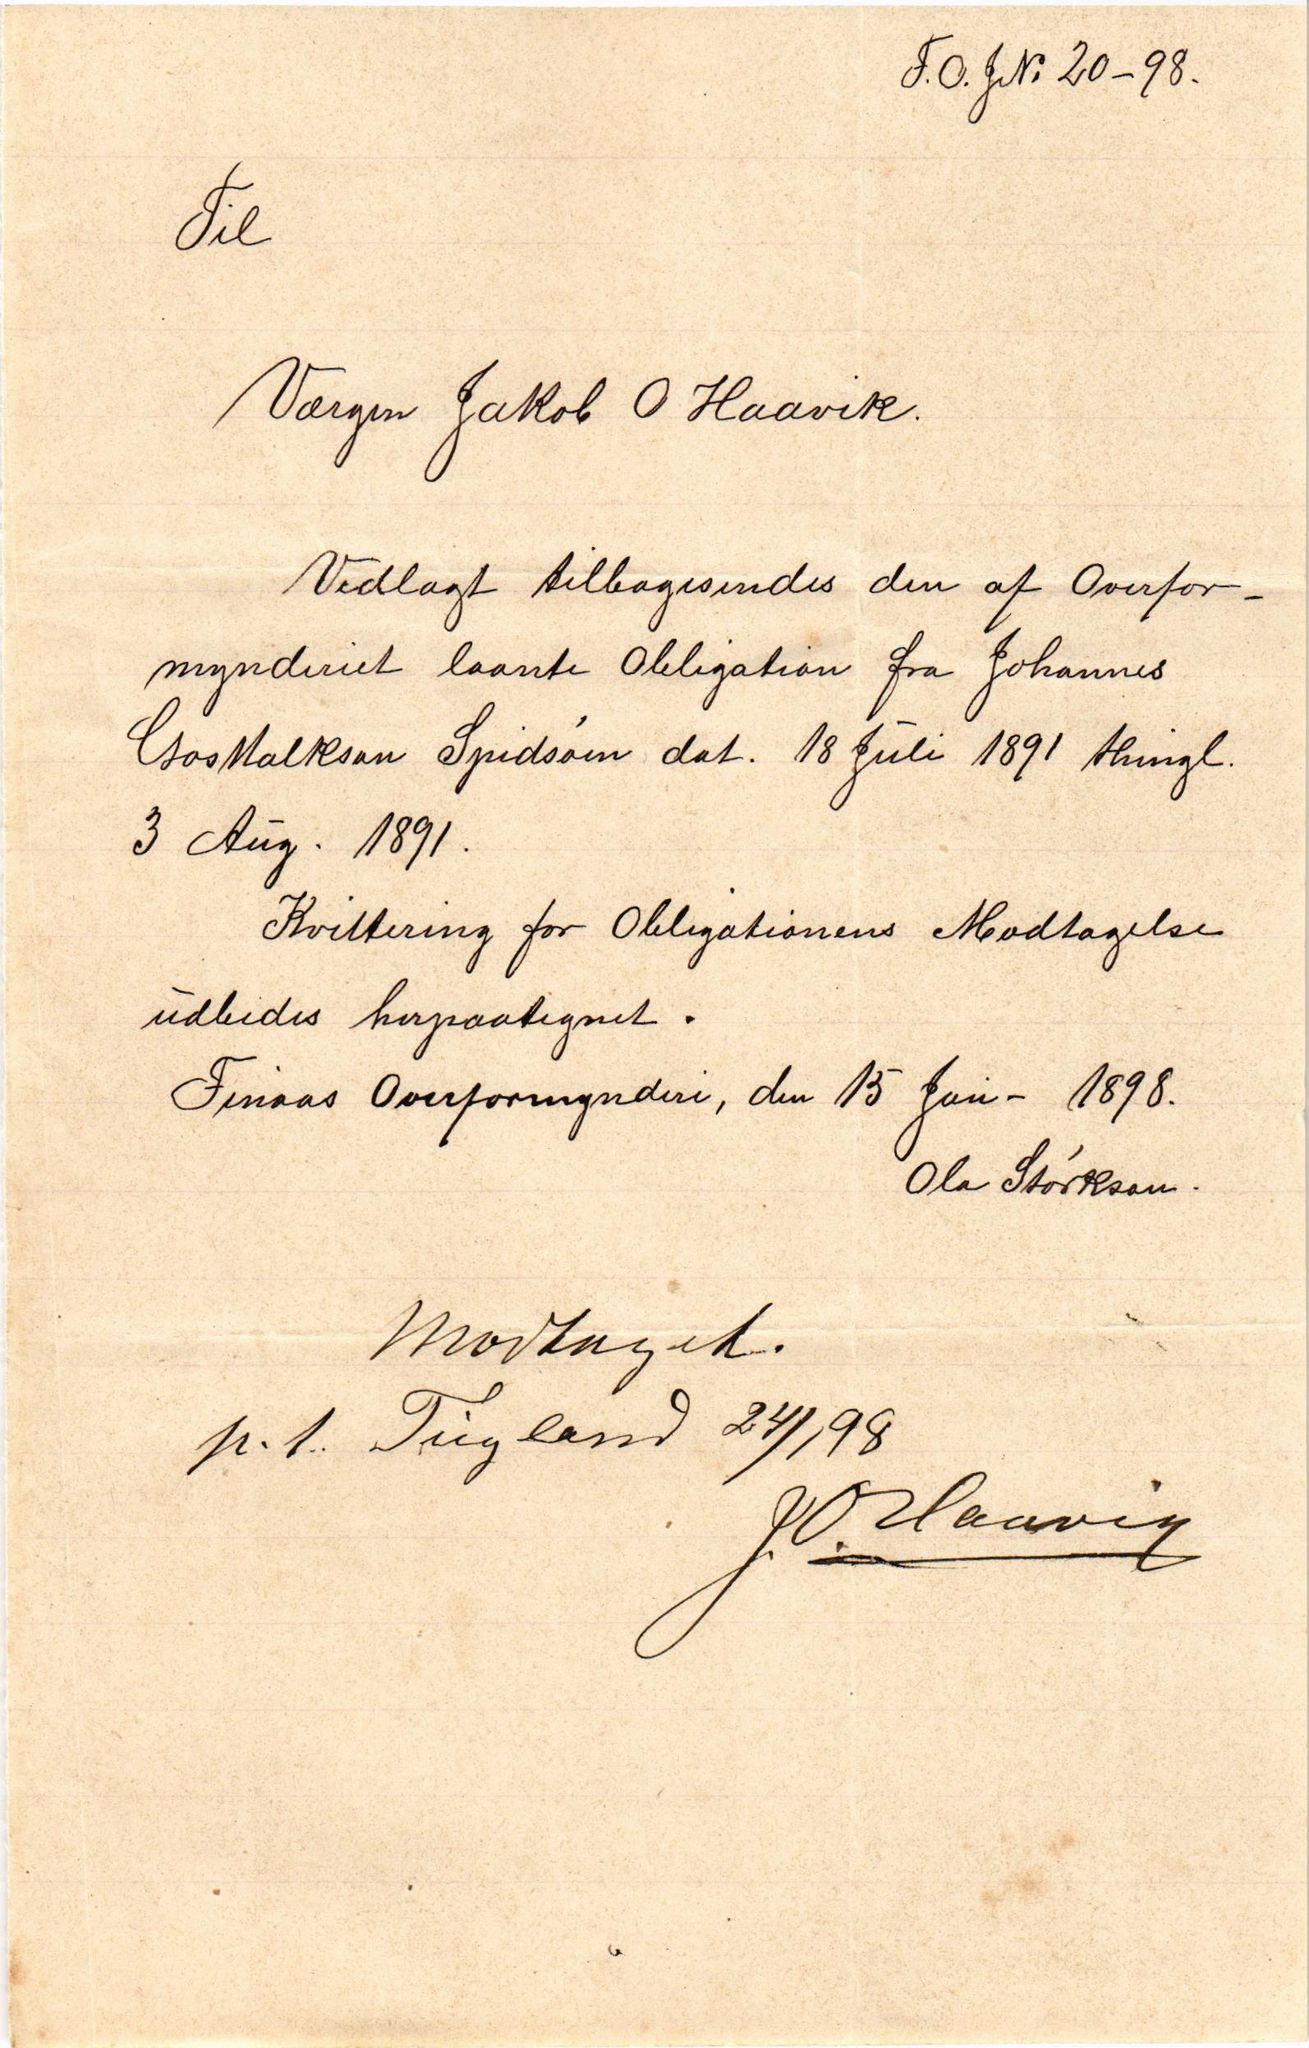 F.O.JN: 20-98.
Til
Værgen Jakob O Haavik.
Vedlagt tilbagesendes den af Overfor-
mynderiet laante Obligation fra Johannes
Gosstalkson Spidsöen dat. 18 Juli 1891 thingl.
3 Aug. 1891.
Kvittering for Obligationens Modtagelse
udbedes herpaategnet.
Finaas Overformynderi, den 15 Jan- 1898.
Ola Störkson.
Modtaget.
p.t. 24/1 98
J.O. Haavig